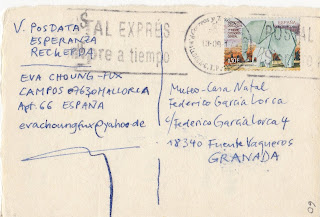 V. POSDATA
ESPERANZA
RECUERDA
POSTAL EXPRÉS
siempre a tiempo
EVA CHOUNG-FUX
CAMPOS 07630 MALLORCA
Apt. 66 ESPAÑA
evachoungfux@yahoo.de
Museo-Casa Natal
Federico García Lorca
c/Federico García Lorca 4
18340 Fuente Vaqueros
GRANADA